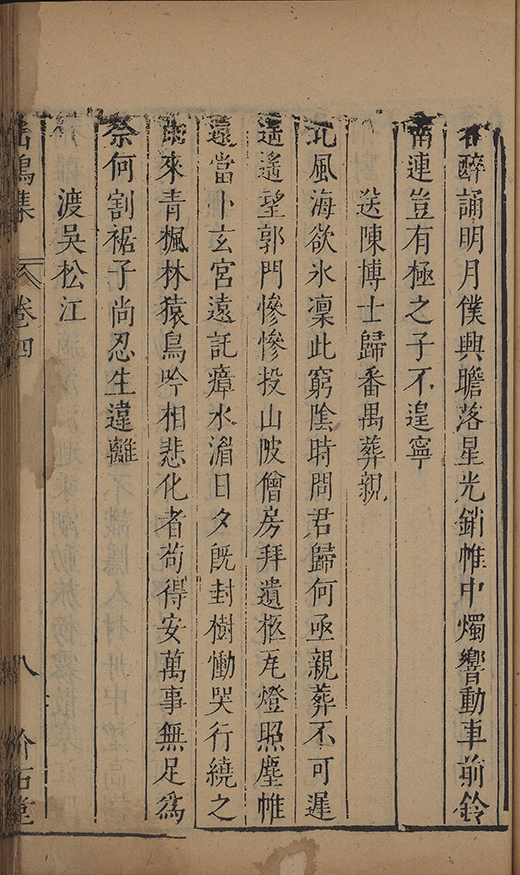 醉誦明月僕興瞻落星光銷帷中燭響動車前鈴
南連豈有極之子不遑寧
送陳博士歸番禺葬親
北風海欲氷凜此窮陰時問君歸何亟親葬不可遲
遥遥望郭門慘慘投山陂僧房拜遺柩瓦燈照塵帷
還當卜玄宮遠託瘴水湄日夕旣封樹慟哭行繞之
來青楓林猿鳥吟相悲化者苟得安萬事無足爲
奈何割裾子尚忍生違離
渡吳松江
鳴集 卷四 八